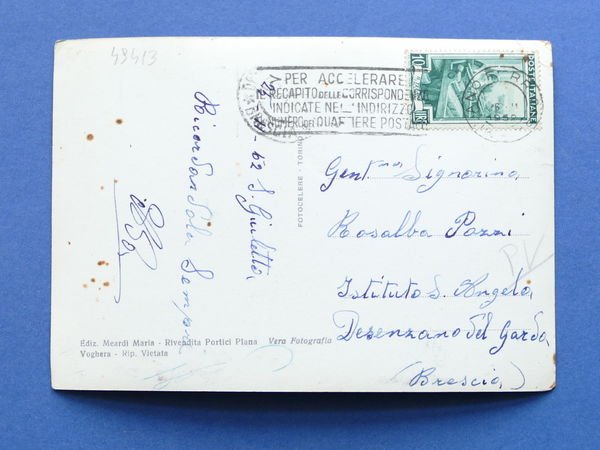 49413
PER ACCELERARE
RECAPITO DELLE CORRISPONDENZE
INDICATE NELL'INDIRIZZO
NUMERO DEL QUARTIERE POSTALE
POSTE ITALIANE
LIRE
FOTOCELERE - TORINO
S. Giuletta,
Ricordandola Sempre
Gent.ma Signorina,
Rosalba Pozzi
Istituto S. Angela,
Desenzano del Garda
(Brescia)
PV
Ediz. Meardi Maria - Rivendita Portici Plana Vera Fotografia
Voghera - Rip. Vietata